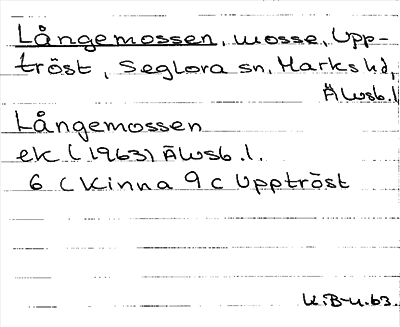 Långemossen, mosse, Upp-
tröst, Seglora sn, Marks hd,
Älvsb. l
Långemossen
ek (1963) Älvsb. l.
6 (Kinna 9 c Upptröst
U.B-u.63.